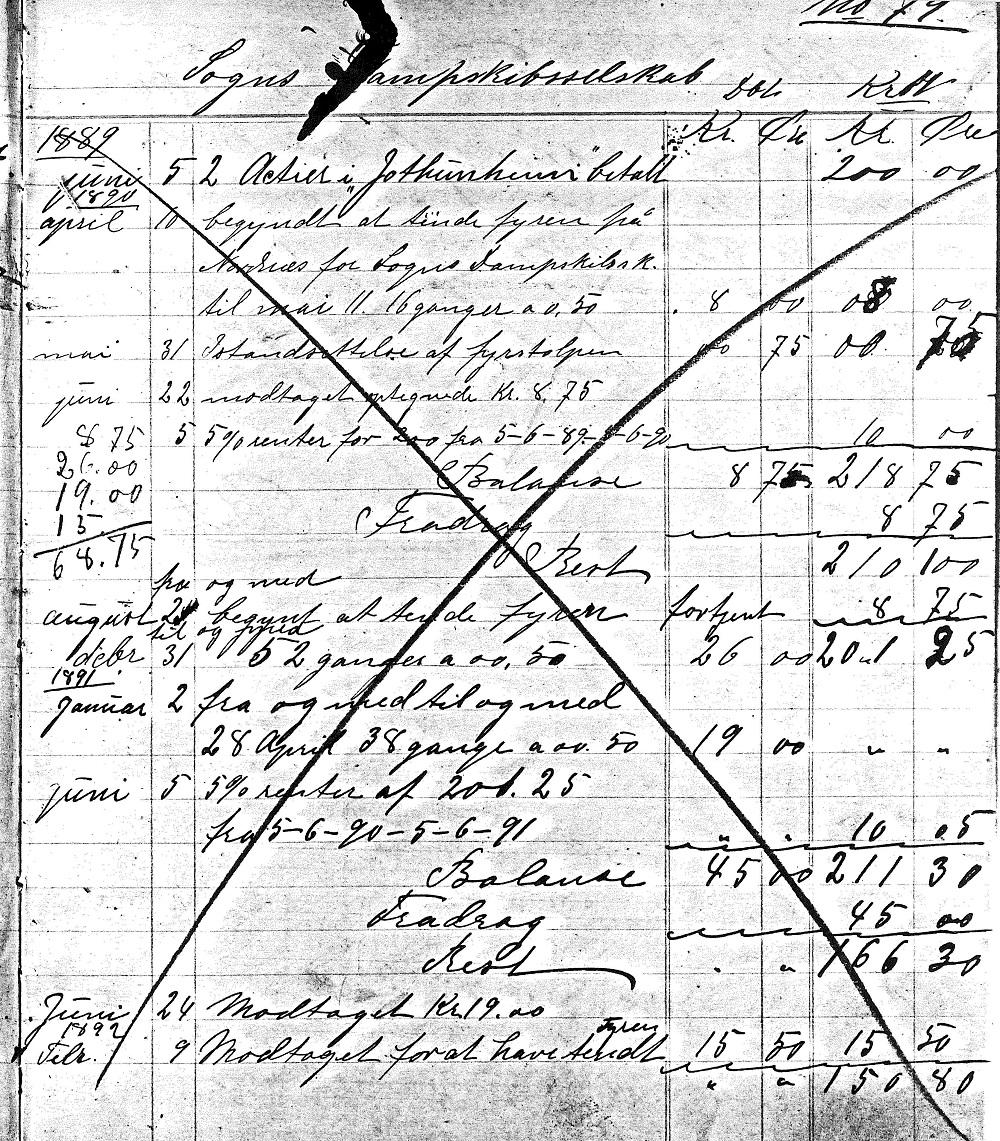 No 79.
Sogns Dampskibsselskab Det Kredt
1889 Kr. Øre Kr. Øre
juni 5 2 Actier i "Jothunheim" betalt 200 00
1890
april 10 begyndt at tënde fyren på
Nordnæs for Sogns Dampskibssk.
til mai 11. 16 ganger a 0,50 . 8 00 8 00
mai 31 Istandsættelse af fyrstolpen 00 75 00 75
juni 22 modtaget Kr. 8,75
8 75 5 5% renter for 200 fra 5-6-89-5-6-90 10 00
26.00 Balanse 8 75 218 75
19.00 Fradrag 8 75
15
68.75 Rest 210 00
fra og med
august 24 begynt at tende fyren fortjent 8 75
til og med
debr 31 52 ganger a 00,50 26 00 201 25
1891
Januar 2 fra og med til og med
28 April 38 gange a 00.50 19 00 " "
juni 5 5% renter af 201.25
fra 5-6-90-5-6-91 " " 10 05
Balanse 45 00 211 30
Fradrag 45 00
Rest " " 166 30
Juni 24 Modtaget Kr. 19.00
1892 fyren
Febr. 9 Modtaget for at have tendt 15 50 15 50
" " 150 80